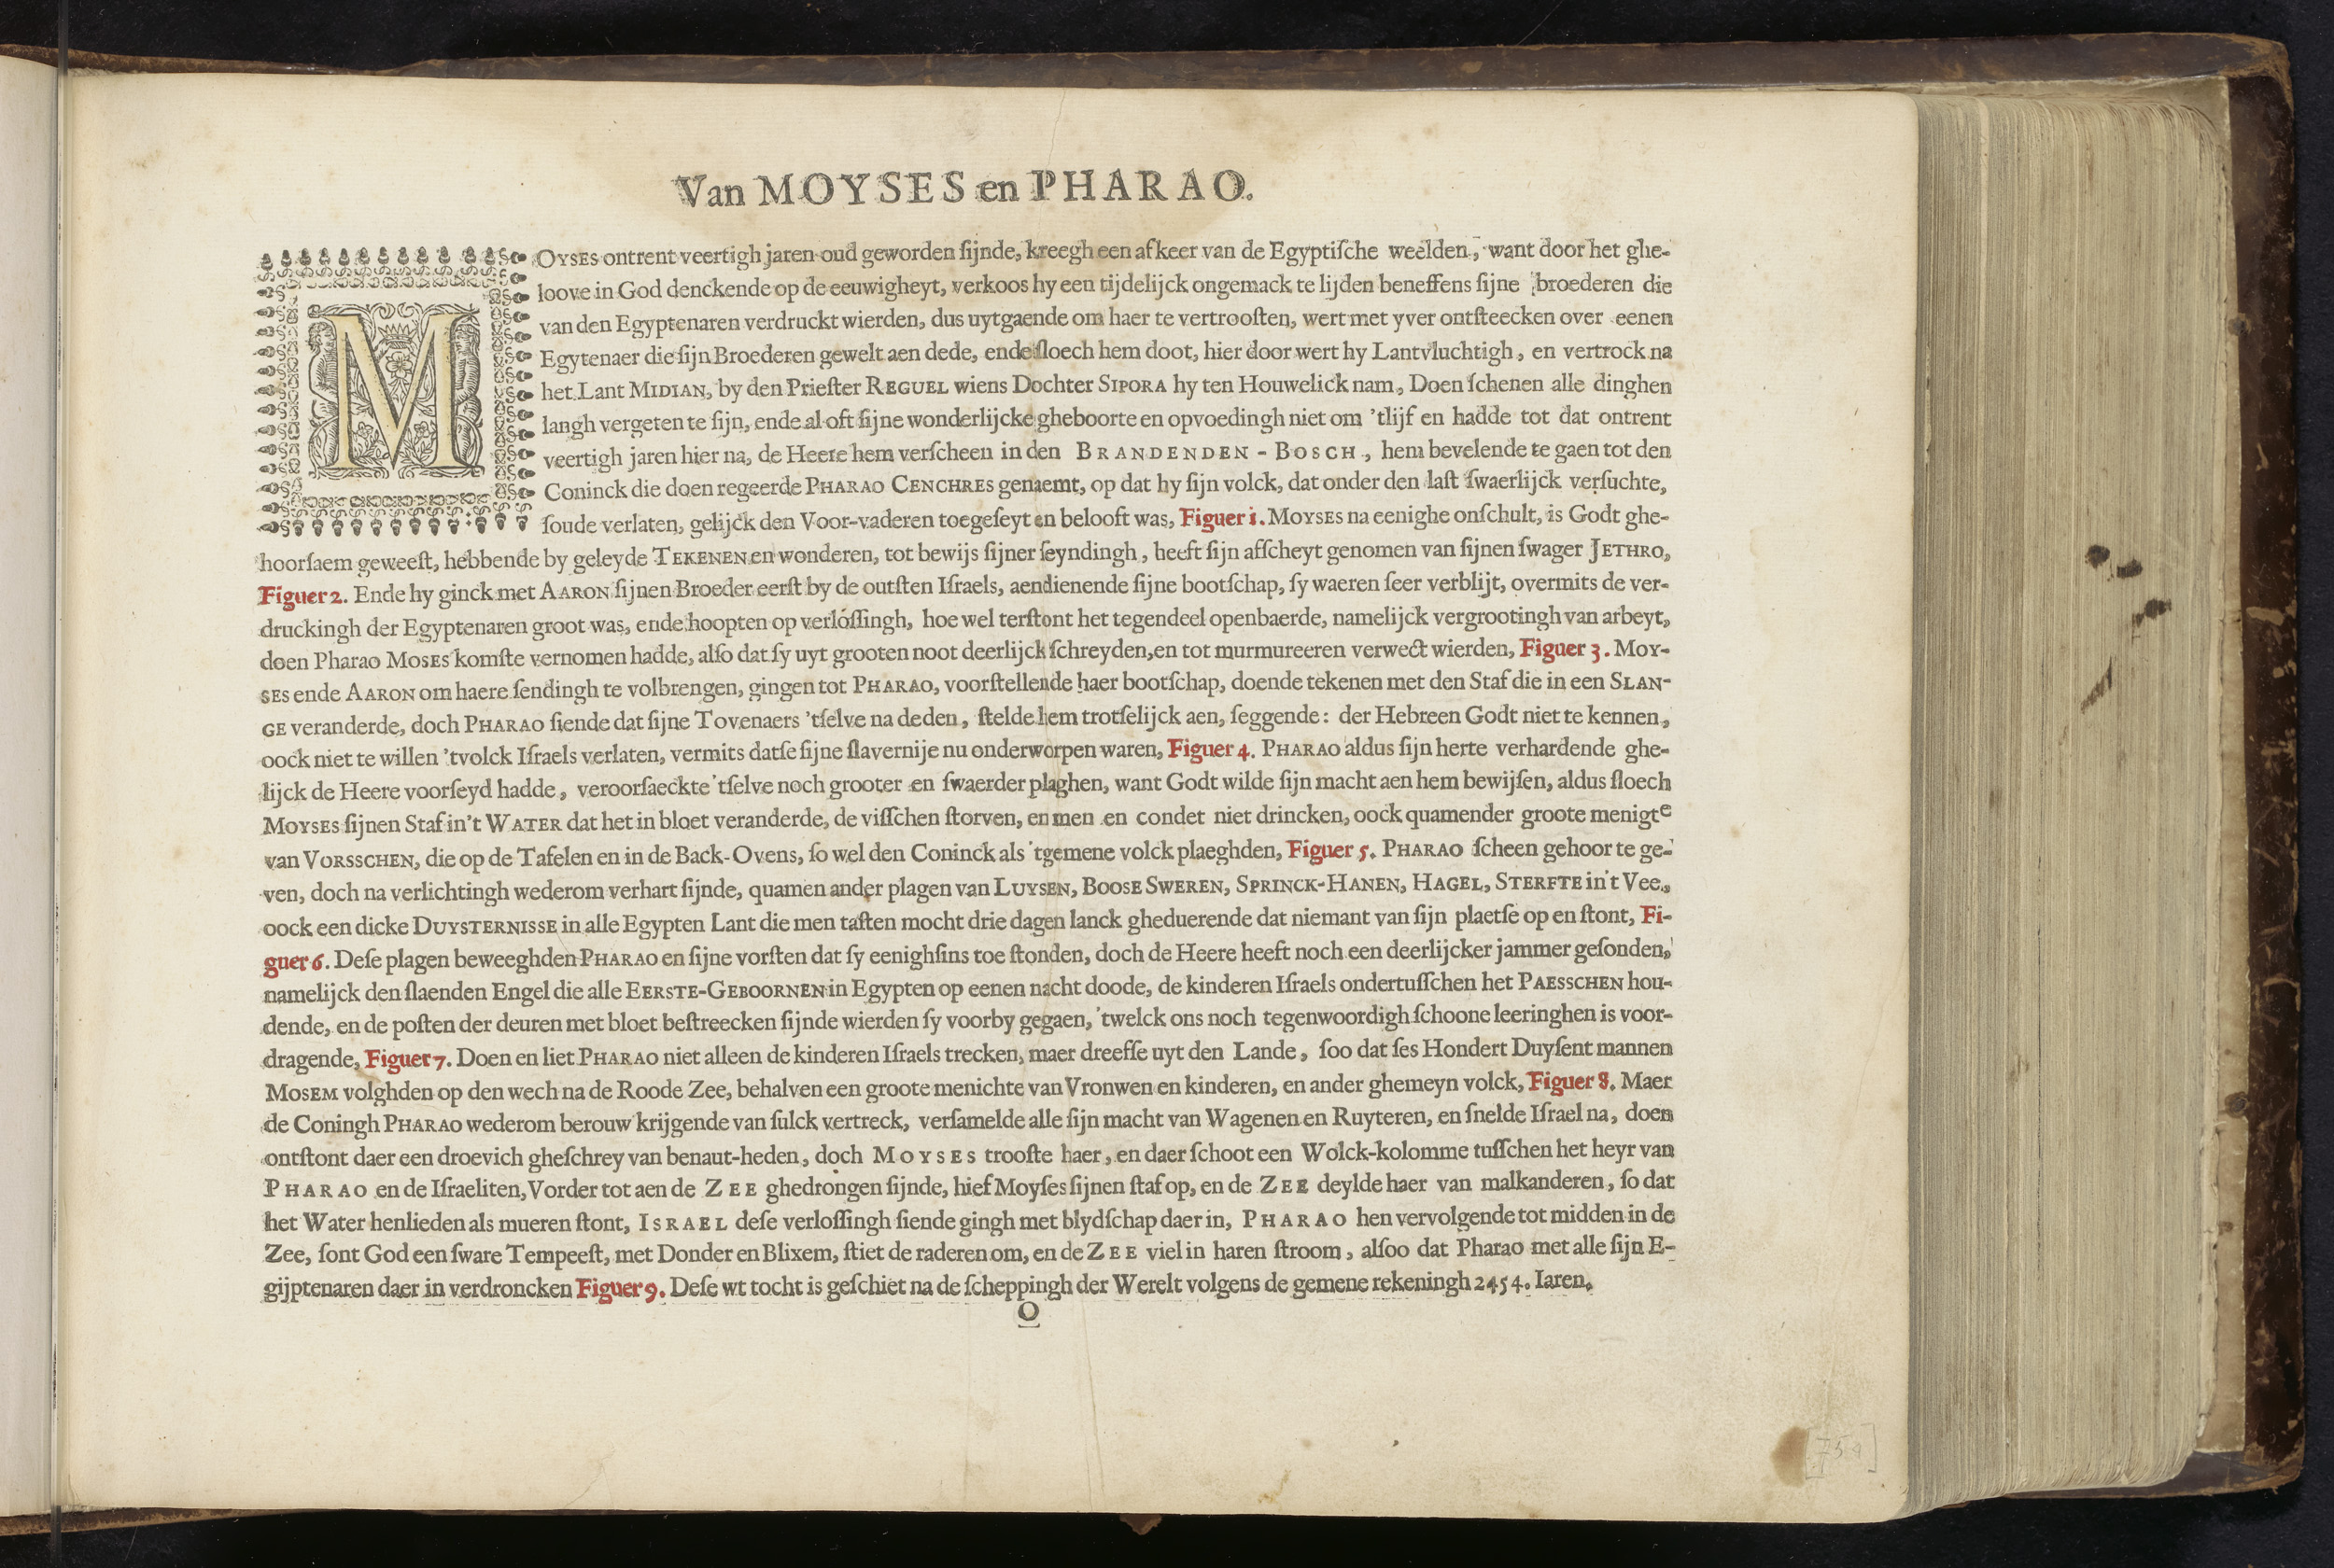 Van MOYSES en PHARAO.
MOYSES ontrent veertigh jaren oud geworden ſijnde, kreegh een afkeer van de Egyptiſche weelden, want door het ghe-
loove in God denckende op de eeuwigheyt, verkoos hy een tijdelijck ongemack te lijden beneffens ſijne broederen die
van den Egyptenaren verdruckt wierden, dus uytgaende om haer te vertrooſten, wert met yver ontſteecken over eenen
Egytenaer die ſijn Broederen gewelt aen dede, ende ſloech hem doot, hier door wert hy Lantvluchtigh, en vertrock na
het Lant MIDIAN, by den Prieſter REGUEL wiens Dochter SIPORA hy ten Houwelick nam, Doen ſchenen alle dinghen
langh vergeten te ſijn, ende al oft ſijne wonderlijcke gheboorte en opvoedingh niet om 'tlijf en hadde tot dat ontrent
veertigh jaren hier na, de Heere hem verſcheen in den BRANDENDEN-BOSCH, hem bevelende te gaen tot den
Coninck die doen regeerde PHARAO CENCHRES genaemt, op dat hy ſijn volck, dat onder den laſt ſwaerlijck verſuchte,
ſoude verlaten, gelijck den Voor-vaderen toegeſeyt en belooft was, Figuer 1. MOYSES na eenighe onſchult, is Godt ghe-
hoorſaem geweeſt, hebbende by geleyde TEKENEN en wonderen, tot bewijs ſijner ſeyndingh, heeft ſijn afſcheyt genomen van ſijnen ſwager JETHRO,
Figuer 2. Ende hy ginck met AARON ſijnen Broeder eerſt by de outſten Iſraels, aendienende ſijne bootſchap, ſy waeren ſeer verblijt, overmits de ver-
druckingh der Egyptenaren groot was, ende hoopten op verlóſſingh, hoe wel terſtont het tegendeel openbaerde, namelijck vergrootingh van arbeyt,
doen Pharao MOSES komſte vernomen hadde, alſo dat ſy uyt grooten noot deerlijck ſchreyden, en tot murmureeren verwect wierden, Figuer 3. MOY-
SES ende AARON om haere ſendingh te volbrengen, gingen tot PHARAO, voorſtellende haer bootſchap, doende tekenen met den Staf die in een SLAN-
GE veranderde, doch PHARAO ſiende dat ſijne Tovenaers 'tſelve na deden, ſtelde hem trotſelijck aen, ſeggende: der Hebreen Godt niet te kennen,
oock niet te willen 'tvolck Iſraels verlaten, vermits datſe ſijne ſlavernije nu onderworpen waren, Figuer 4. PHARAO aldus ſijn herte verhardende ghe-
lijck de Heere voorſeyd hadde, veroorſaeckte 'tſelve noch grooter en ſwaerder plaghen, want Godt wilde ſijn macht aen hem bewijſen, aldus ſloech
MOYSES ſijnen Staf in't WATER dat het in bloet veranderde, de viſſchen ſtorven, en men en condet niet drincken, oock quamender groote menigte
van VORSSCHEN, die op de Tafelen en in de Back-Ovens, ſo wel den Coninck als 'tgemene volck plaeghden, Figuer 5. PHARAO ſcheen gehoor te ge-
ven, doch na verlichtingh wederom verhart ſijnde, quamen ander plagen van LUYSEN, BOOSE SWEREN, SPRINCK-HANEN, HAGEL, STERFTE in't Vee,
oock een dicke DUYSTERNISSE in alle Egypten Lant die men taſten mocht drie dagen lanck gheduerende dat niemant van ſijn plaetſe op en ſtont, Fi-
guer 6. Deſe plagen beweeghden PHARAO en ſijne vorſten dat ſy eenighſins toe ſtonden, doch de Heere heeft noch een deerlijcker jammer geſonden,
namelijck den ſlaenden Engel die alle EERSTE-GEBOORNEN in Egypten op eenen nacht doode, de kinderen Iſraels ondertuſſchen het PAESSCHEN hou-
dende, en de poſten der deuren met bloet beſtreecken ſijnde wierden ſy voorby gegaen, 'twelck ons noch tegenwoordigh ſchoone leeringhen is voor-
dragende, Figuer 7. Doen en liet PHARAO niet alleen de kinderen Iſraels trecken, maer dreefſe uyt den Lande, ſoo dat ſes Hondert Duyſent mannen
MOSEM volghden op den wech na de Roode Zee, behalven een groote menichte van Vronwen en kinderen, en ander ghemeyn volck, Figuer 8. Maer
de Coningh PHARAO wederom berouw krijgende van ſulck vertreck, verſamelde alle ſijn macht van Wagenen en Ruyteren, en ſnelde Iſrael na, doen
ontſtont daer een droevich gheſchrey van benaut-heden, doch MOYSES trooſte haer, en daer ſchoot een Wolck-kolomme tuſſchen het heyr van
PHARAO en de Iſraeliten, Vorder tot aen de ZEE ghedrongen ſijnde, hief Moyſes ſijnen ſtaf op, en de ZEE deylde haer van malkanderen, ſo dat
het Water henlieden als mueren ſtont, ISRAEL deſe verloſſingh ſiende gingh met blydſchap daer in, PHARAO hen vervolgende tot midden in de
Zee, ſont God een ſware Tempeeſt, met Donder en Blixem, ſtiet de raderen om, en de ZEE viel in haren ſtroom, alſoo dat Pharao met alle ſijn E-
gijptenaren daer in verdroncken Figuer 9. Deſe wt tocht is geſchiet na de ſcheppingh der Werelt volgens de gemene rekeningh 2454. Iaren.
O